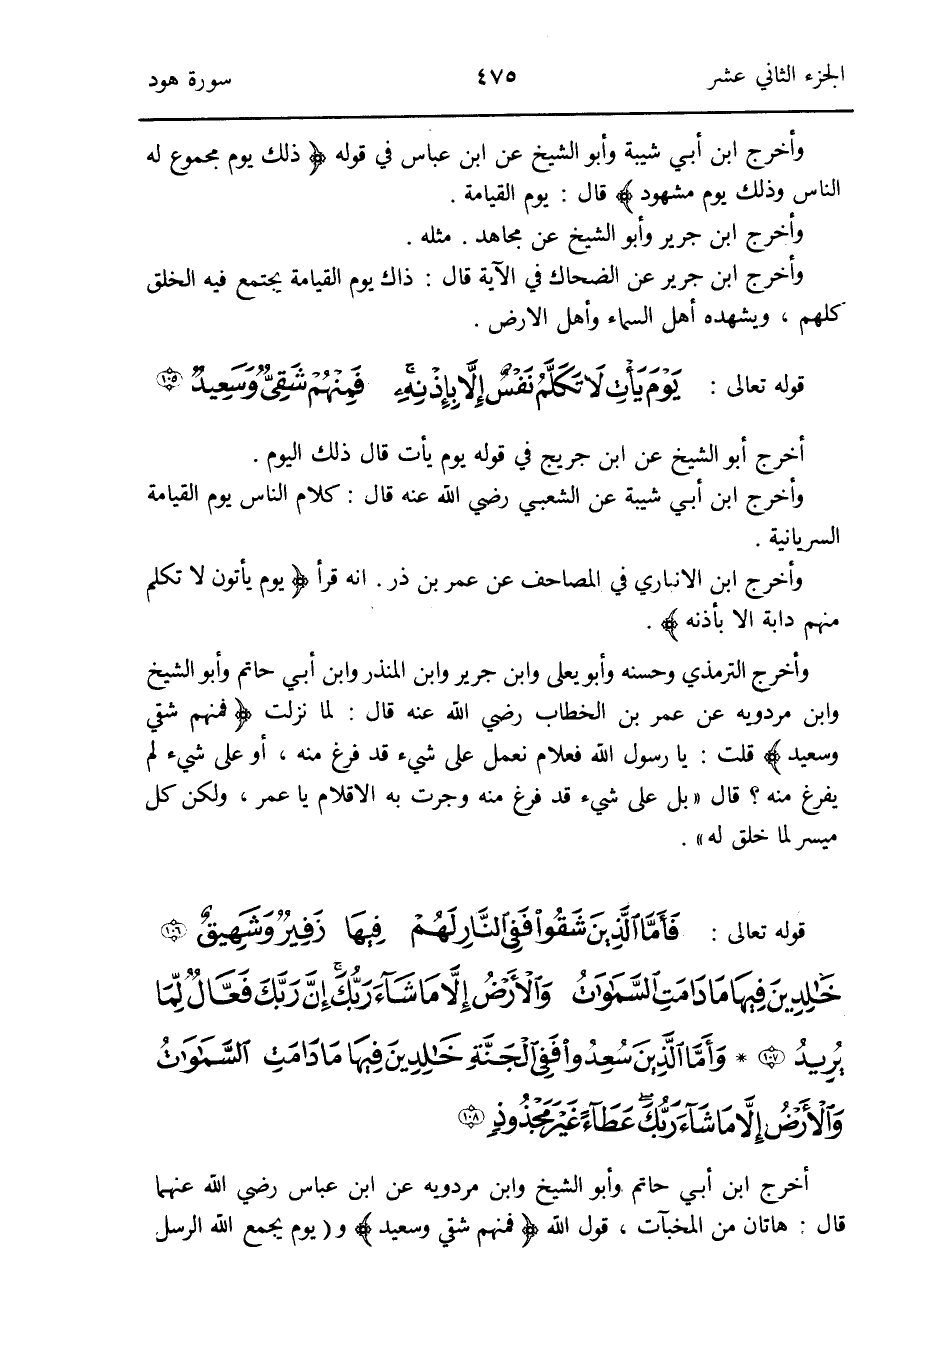 الجزء الثاني عشر ٤٧٥ سورة هود
وأخرج ابن أبـي شيبة وأبو الشيخ عن ابن عباس في قوله ﴿ ذلك يوم مجموع له
الناس وذلك يوم مشهود ﴾ قال : يوم القيامة .
وأخرج ابن جرير وأبو الشيخ عن مجاهد . مثله .
وأخرج ابن جرير عن الضحاك في الآية قال : ذاك يوم القيامة يجتمع فيه الخلق
كلهم ، ويشهده أهل السماء وأهل الارض .
قوله تعالى : يَوْمَ يَأْتِ لَا تَكَلَّمُ نَفْسٌ إِلَّا بِإِذْنِهِۦۚ فَمِنْهُمْ شَقِىٌّ وَسَعِيدٌ ١٠٥
أخرج أبو الشيخ عن ابن جريج في قوله يوم يأت قال ذلك اليوم .
وأخرج ابن أبـي شيبة عن الشعبـي رضي الله عنه قال : كلام الناس يوم القيامة
السريانية .
وأخرج ابن الانباري في المصاحف عن عمر بن ذر . انه قرأ ﴿ يوم يأتون لا تكلم
منهم دابة الا بأذنه ﴾ .
وأخرج الترمذي وحسنه وأبو يعلى وابن جرير وابن المنذر وابن أبـي حاتم وأبو الشيخ
وابن مردويه عن عمر بن الخطاب رضي الله عنه قال : لما نزلت ﴿ فمنهم شقي
وسعيد ﴾ قلت : يا رسول الله فعلام نعمل على شيء قد فرغ منه ، أو على شيء لم
يفرغ منه ؟ قال « بل على شيء قد فرغ منه وجرت به الاقلام يا عمر ، ولكن كل
ميسر لما خلق له » .
قوله تعالى : فَأَمَّا ٱلَّذِينَ شَقُوا۟ فَفِى ٱلنَّارِ لَهُمْ فِيهَا زَفِيرٌ وَشَهِيقٌ ١٠٦
خَـٰلِدِينَ فِيهَا مَا دَامَتِ ٱلسَّمَـٰوَٰتُ وَٱلْأَرْضُ إِلَّا مَا شَآءَ رَبُّكَۚ إِنَّ رَبَّكَ فَعَّالٌ لِّمَا
يُرِيدُ ١٠٧ * وَأَمَّا ٱلَّذِينَ سُعِدُوا۟ فَفِى ٱلْجَنَّةِ خَـٰلِدِينَ فِيهَا مَا دَامَتِ ٱلسَّمَـٰوَٰتُ
وَٱلْأَرْضُ إِلَّا مَا شَآءَ رَبُّكَۖ عَطَآءً غَيْرَ مَجْذُوذٍ ١٠٨
أخرج ابن أبـي حاتم وأبو الشيخ وابن مردويه عن ابن عباس رضي الله عنهما
قال : هاتان من المخبآت ، قول الله ﴿ فمنهم شقي وسعيد ﴾ و ( يوم يجمع الله الرسل